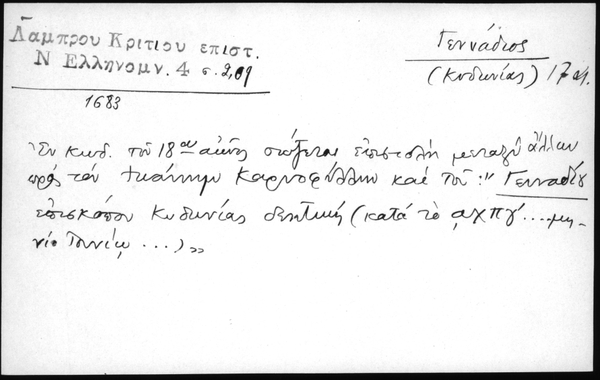 Λαμπρου Κριτιου επιστ.
Ν Ελληνομν. 4 σ. 2,09
1683
Γεννάδιος
(Κυδωνίας) 17 αι.
Ἐν κωδ. τοῦ 18ου αἰῶνος σώζεται ἐπιστολὴ μεταξὺ ἄλλων
πρὸς τὸν Ἰωάννην Καρυοφύλλην καὶ τοῦ: " Γενναδίου
ἐπισκόπου Κυδωνίας δεητική (κατὰ τὸ ͵αχπγ´ ... μη-
νὶ Ἰουνίῳ ...) »